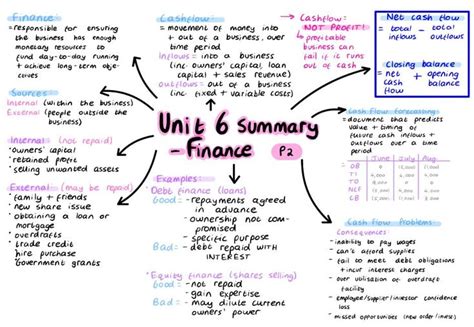 Finance
= responsible for ensuring
the business has enough
monetary resources to
fund day-to-day running
+ achieve long-term obje-
ctives
Sources
Internal (within the business)
External (people outside the
business)
Internal (not repaid)
• owners' capital
• retained profit
• selling unwanted assets
External (may be repaid)
• family + friends
• new share issue
• obtaining a loan or
mortgage
• overdrafts
• trade credit
• hire purchase
• Government grants
Cashflow
= movement of money into
+ out of a business, over
time period
Inflows = into a business
(inc owners' capital, loan
capital + sales revenue)
outflows = out of a business
(inc fixed + variable costs)
Unit 6 Summary
- Finance P2
Examples:
• Debt finance (loans)
Good = - repayments agreed
in advance
- ownership not com-
promised
- specific purpose
Bad = - debt repaid WITH
INTEREST
• Equity finance (shares selling)
Good = - not repaid
- gain expertise
Bad = - may dilute current
owners' power
Cashflow =
NOT PROFIT!
↳ profitable
business can
fail if it runs
out of cash
Net cash flow
= total - total
inflows outflows
Closing balance
= net + opening
cash balance
flow
Cash flow forecasting
= document that predicts
value + timing of
future cash inflows +
outflows over a time
period
June July Aug
OB
TI
TO
NCF
CB
Cash flow Problems
Consequences:
- inability to pay wages
- can't afford supplies
- fail to meet debt obligations
+ incur interest charges
- over utilisation of overdraft
facility
- employee/supplier/investor confidence
loss
- missed opportunities (new order/invest)